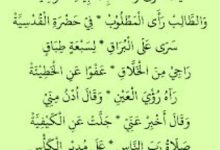 وَالطَّالِبُ رَأَى الْمَطْلُوبْ * فِي حَضْرَةِ الْقُدْسِيَّةْ
سَرَى عَلَى الْبُرَاقِ * لِسَبْعَةٍ طِبَاقِ
رَاجِيْ مِنَ الْخَلَّاقِ * عَفْوًا عَنِ الْخَطِيْئَةْ
رَآهُ رُؤْيَ الْعَيْنِ * وَقَالَ اُدْنُ مِنِّي
وَقَالَ أَخْبِرْ عَنِّيْ * جَلَّتْ عَنِ الْكَيْفِيَّةْ
صَلَاةُ رَبِّ النَّاسِ * عَلَى مُدِيْرِ الْكَأْسِ